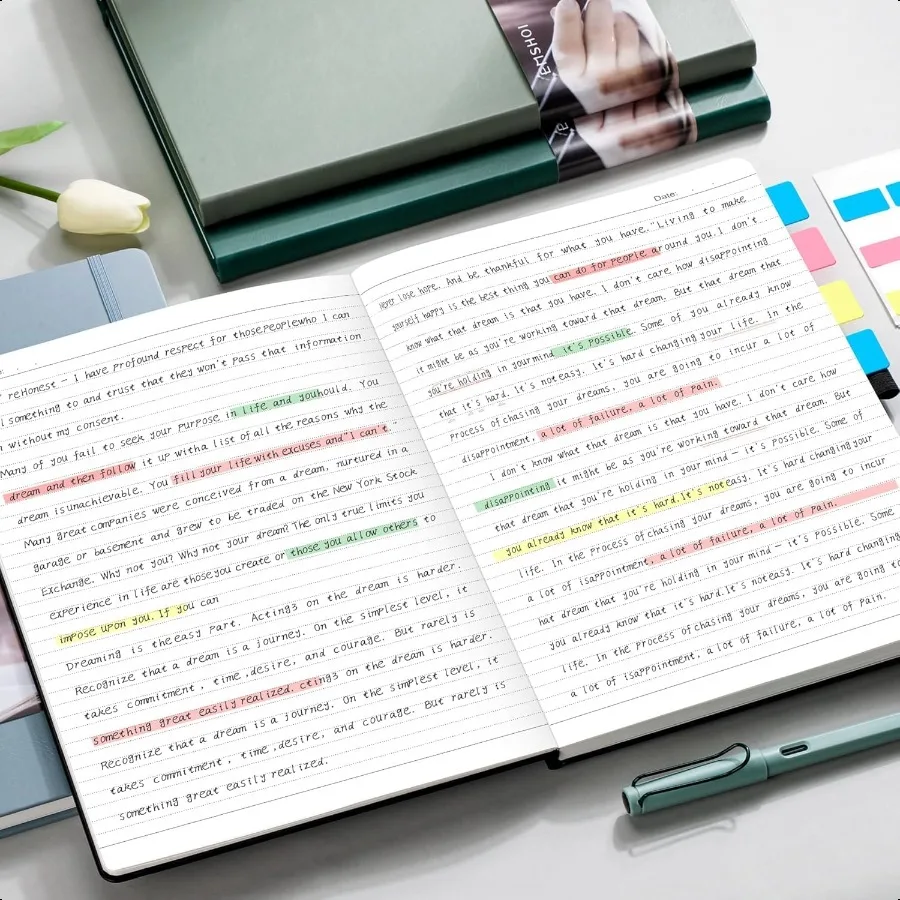 EMSHOI
reHonest — I have profound respect for thosepeoplewho I can
something to and trust that they won't pass that information
without my consent.
Many of you fail to seek your purpose in life and youhould. You
dream and then follow it up witha list of all the reasons why the
dream isunachievable. You fill your life with excuses and"I can't."
Many great companies were conceived from a dream, nurtured in a
garage or basement and grew to be traded on the New York Stock
Exchange. Why not you? Why not your dream? The only true limits you
experience in life are thoseyou create or those you allow others to
impose upon you. If you can
Dreaming is theeasy part. Acting3 on the dream is harder.
Recognize that a dream is a journey. On the simplest level, it
takes commitment, time,desire, and courage. But rarely is
something great easily realized. cting3 on the dream is harder.
Recognize that a dream is a journey. On the simplest level, it
takes commitment, time,desire, and courage. But rarely is
something great easily realized.
Date:
never lose hope. And be thankful for what you have."Living to make
yourself happy is the best thing you can do for people around you.I don't
know what that dream is that you have. I don't care how disappointing
it might be as you're working toward that dream. But that dream that
you're holding in yourmind it's possible. Some of you already know
that it's hard. It's noteasy. It's hard changing your life. In the
process of chasing your dreams, you are going to incur a lot of
disappointment, a lot of failure, a lot of pain.
I don't know what that dream is that you have. I don't care how
disappointing it might be as you're working toward that dream. But
that dream that you're holding in your mind — it's possible. Some of
you already know that it's hard.It's noteasy. It's hard changing your
life. In the process of chasing your dreams, you are going to incur
a lot of isappointment, a lot of failure, a lot of pain.
hat dream that you're holding in your mind — it's possible. Some
you already know that it's hard.It's noteasy. It's hard changing
life. In the process of chasing your dreams, you are going to
a lot of isappointment, a lot of failure, a lot of pain.